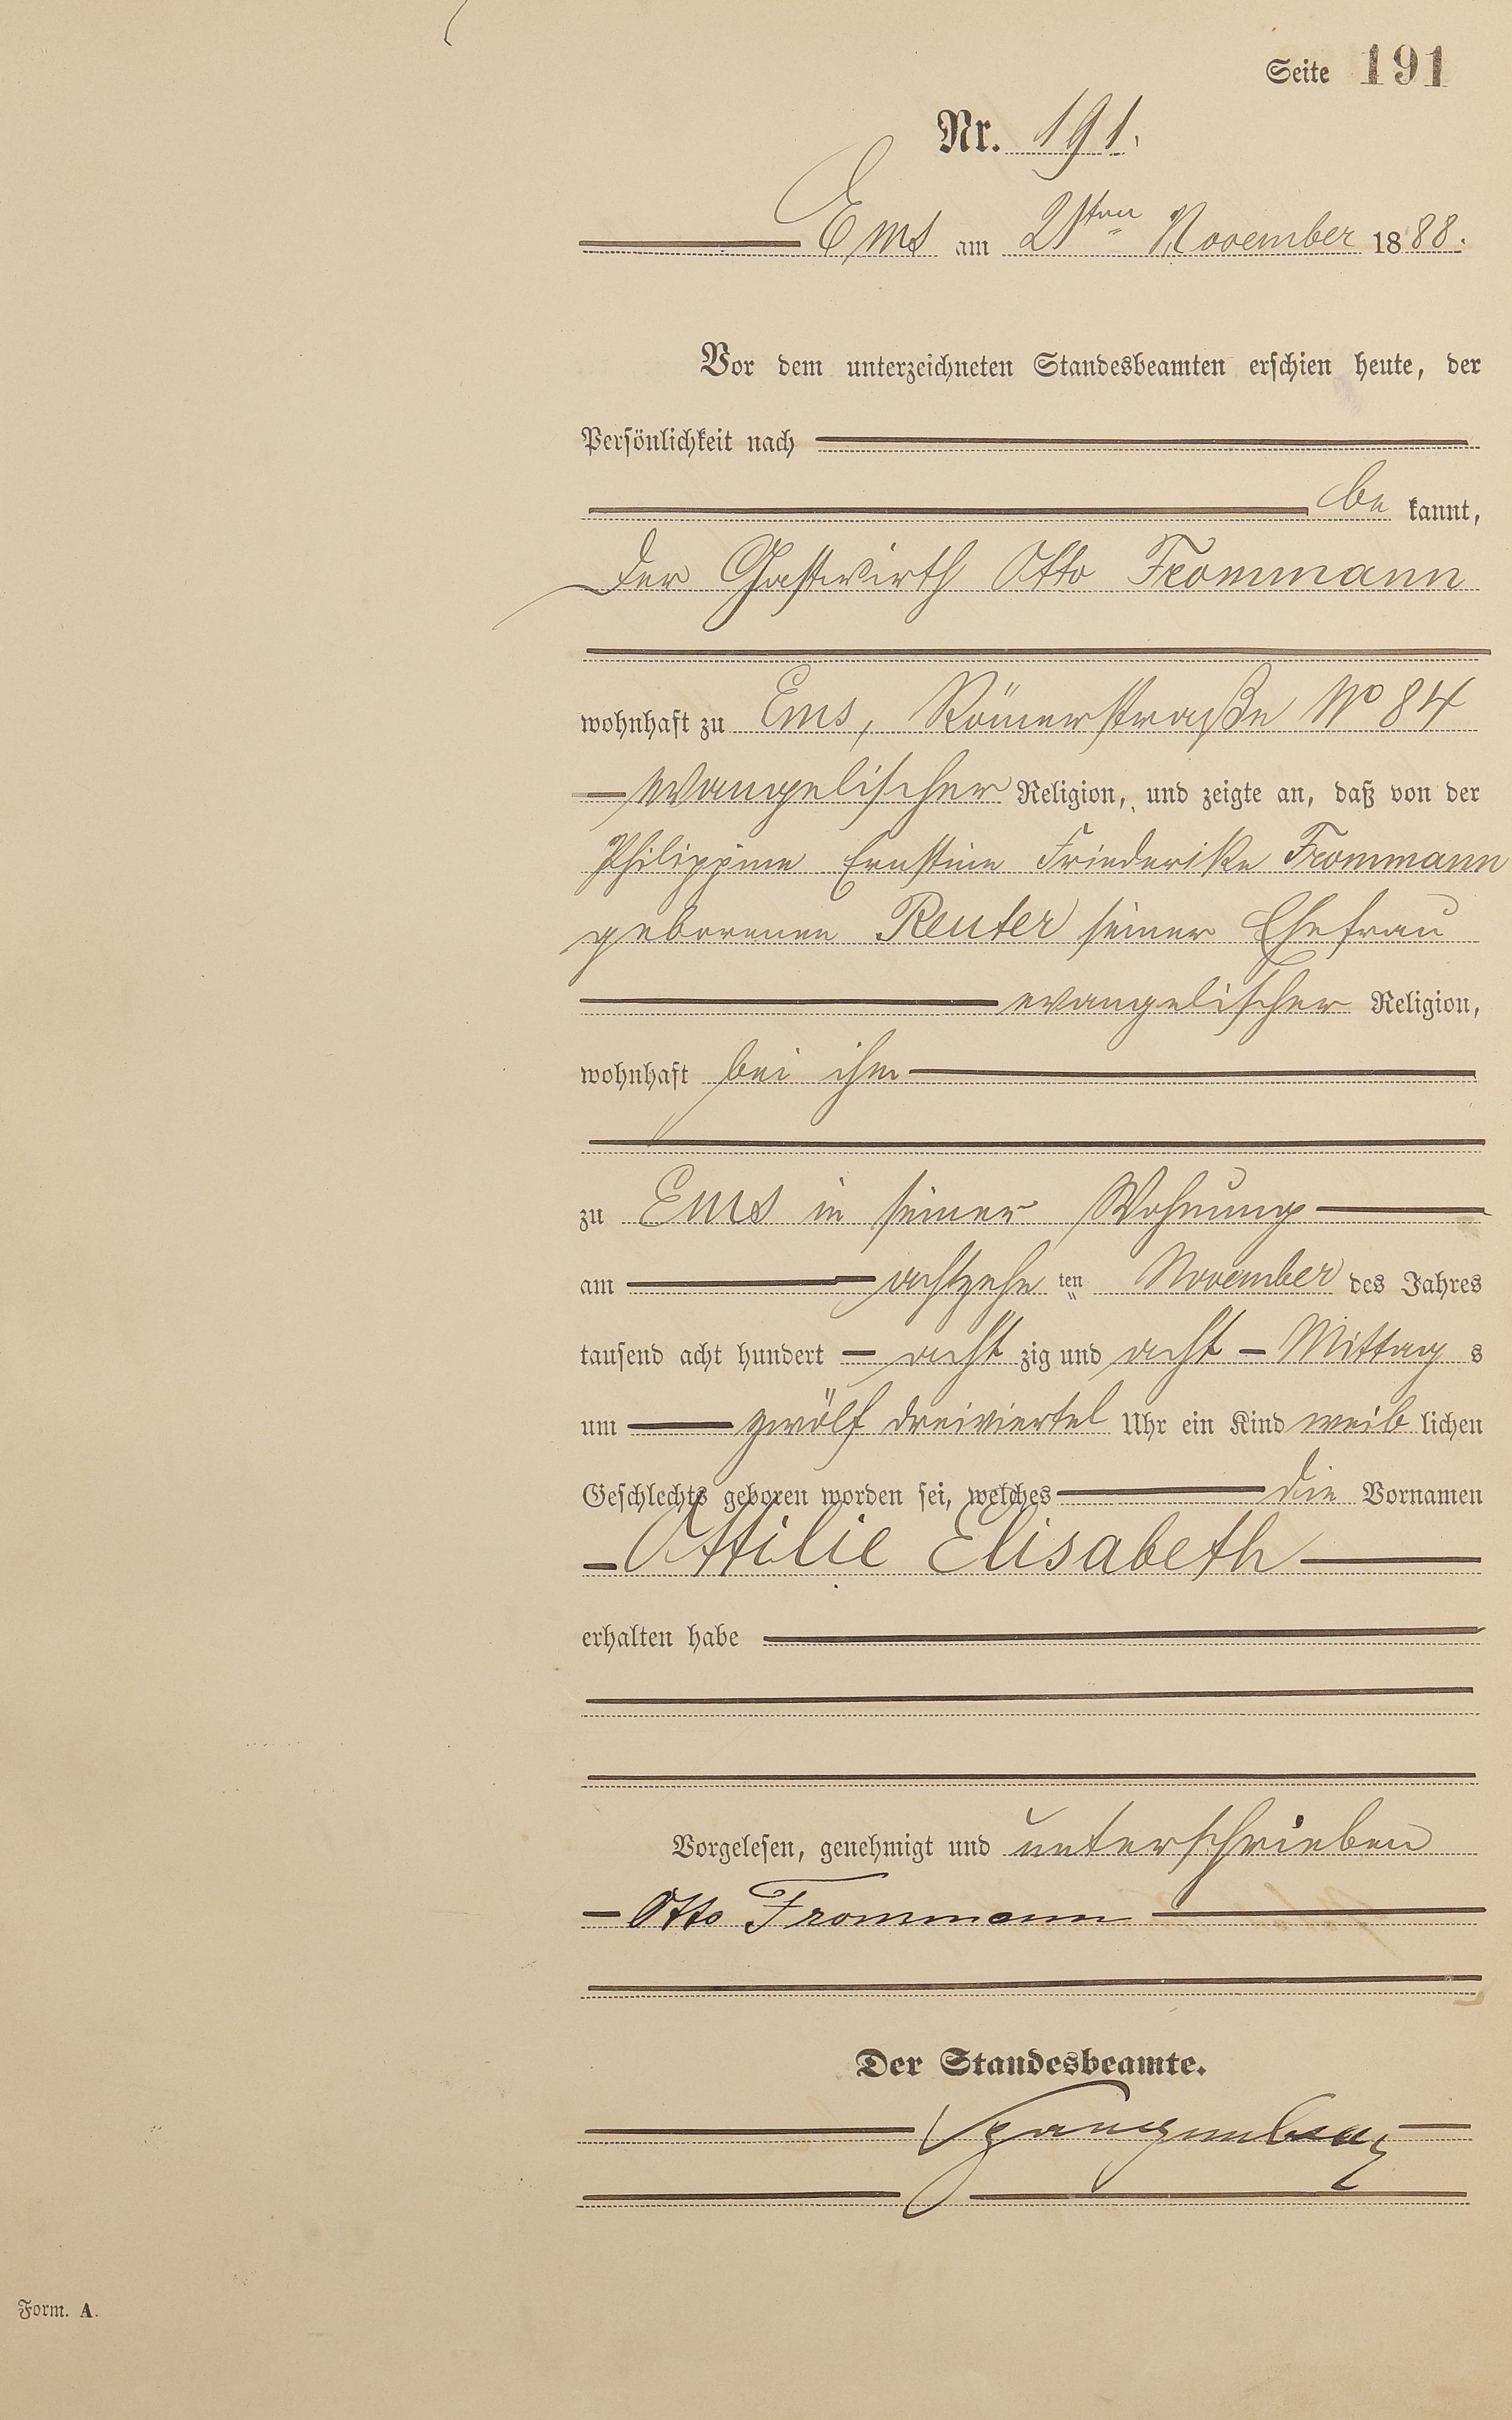 Seite 191
Nr. 191.
Ems am 21ten November 1888.
Vor dem unterzeichneten Standesbeamten erschien heute, der
Persönlichkeit nach
be kannt,
der Gastwirth Otto Frommann
wohnhaft zu Ems, Römerstraße No 84
evangelischer Religion, und zeigte an, daß von der
Philippine Ernstine Friederike Frommann
geborenen Reuter seiner Ehefrau
evangelischer Religion,
wohnhaft bei ihm
zu Ems in seiner Wohnung
am achtzehn ten November des Jahres
tausend acht hundert acht zig und acht Mittag s
um zwölf dreiviertel Uhr ein Kind weib lichen
Geschlechts geboren worden sei, welches die Vornamen
Ottilie Elisabeth
erhalten habe
Vorgelesen, genehmigt und unterschrieben
Otto Frommann
Der Standesbeamte.
Form. A.